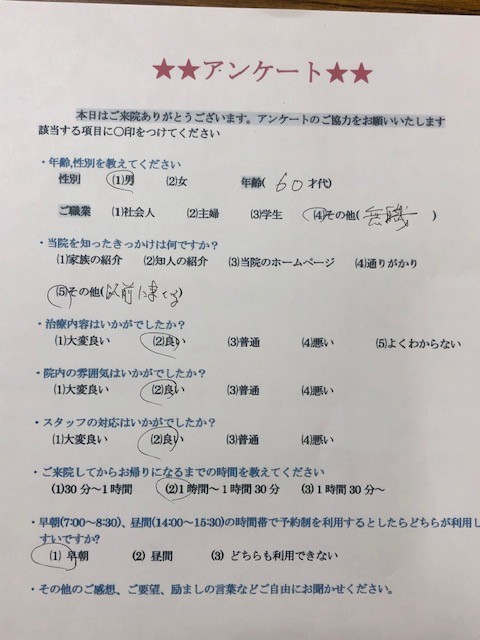 ★★アンケート★★
本日はご来院ありがとうございます。アンケートのご協力をお願いいたします
該当する項目に〇印をつけてください
・年齢,性別を教えてください
性別 (1)男 (2)女 年齢( 60 才代)
ご職業 (1)社会人 (2)主婦 (3)学生 (4)その他(無職 )
・当院を知ったきっかけは何ですか?
(1)家族の紹介 (2)知人の紹介 (3)当院のホームページ (4)通りがかり
(5)その他(以前に来てる)
・治療内容はいかがでしたか?
(1)大変良い (2)良い (3)普通 (4)悪い (5)よくわからない
・院内の雰囲気はいかがでしたか?
(1)大変良い (2)良い (3)普通 (4)悪い
・スタッフの対応はいかがでしたか?
(1)大変良い (2)良い (3)普通 (4)悪い
・ご来院してからお帰りになるまでの時間を教えてください
(1)30分~1時間 (2)1時間~1時間30分 (3)1時間30分~
・早朝(7:00~8:30)、昼間(14:00~15:30)の時間帯で予約制を利用するとしたらどちらが利用し
すいですか?
(1) 早朝 (2) 昼間 (3) どちらも利用できない
・その他のご感想、ご要望、励ましの言葉などご自由にお聞かせください。